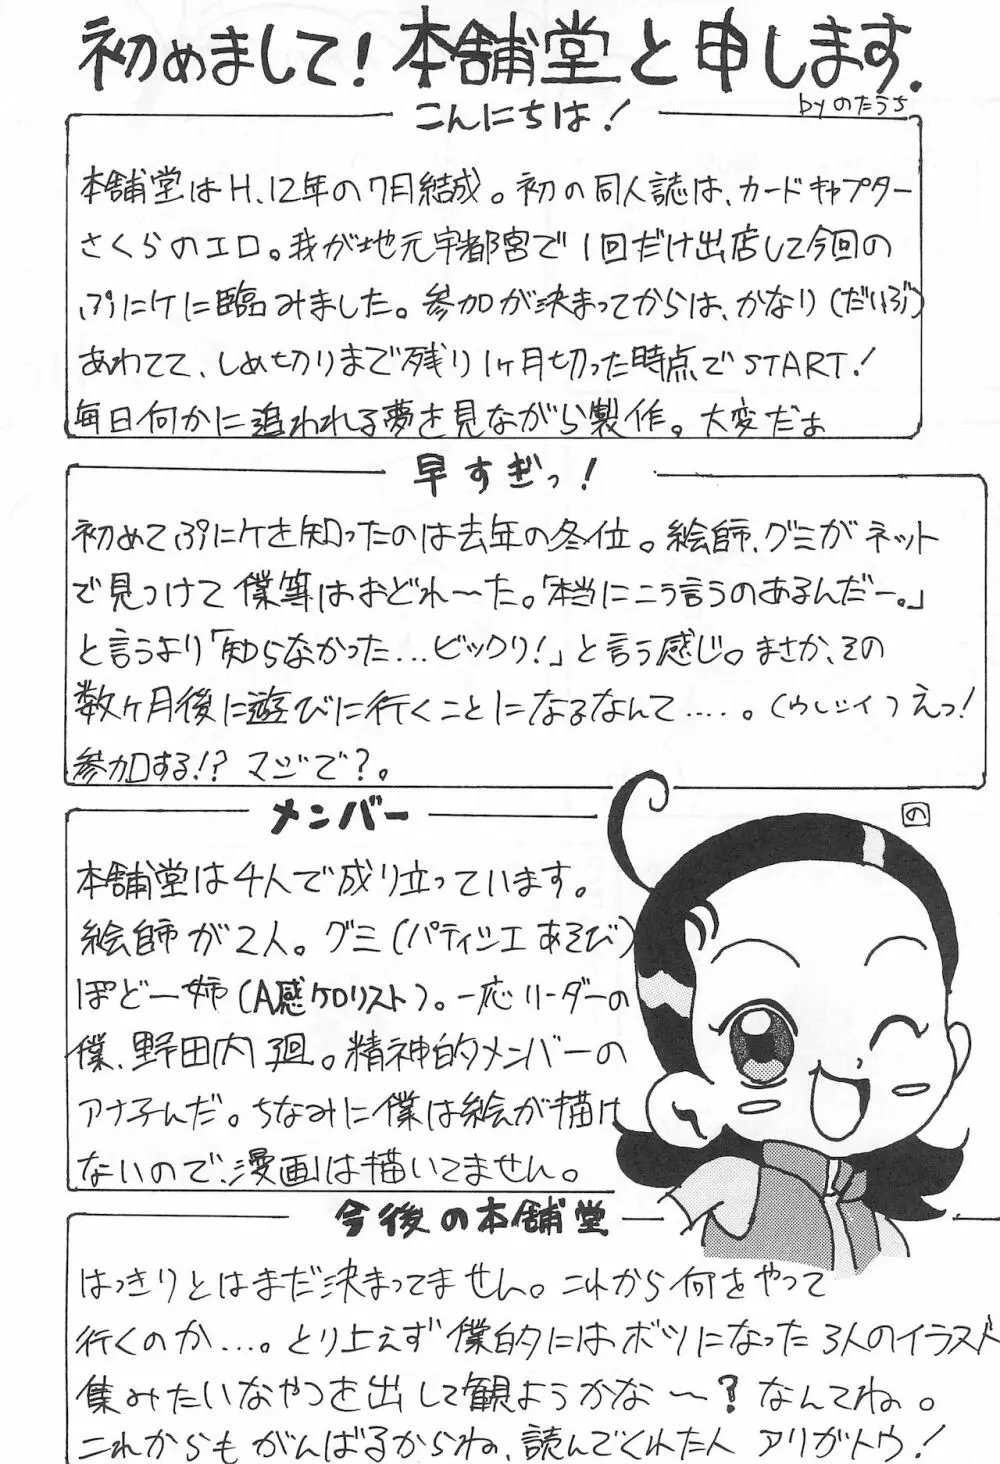 初めまして!本舗堂と申します.
byのたうち
こんにちは!
本舗堂はH.12年の7月結成。初の同人誌は、カードキャプター
さくらのエロ。我が地元宇都宮で1回だけ出店して今回の
ぷにケに臨みました。参加が決まってからは、かなり(だいぶ)
あわてて、しめ切りまで残り1ヶ月切った時点でSTART!
毎日何かに追われる夢を見ながら製作。大変だぁ
早すぎっ!
初めてぷにケを知ったのは去年の冬位。絵師、グミがネット
で見つけて僕等はおどれ〜た。「本当にこう言うのあるんだー。」
と言うより「知らなかった...ビックリ!」と言う感じ。まさか、その
数ヶ月後に遊びに行くことになるなんて.....。(ウレシイ)えっ!
参加する!?マジで?。
メンバー
の
本舗堂は4人で成り立っています。
絵師が2人。グミ(パティシエあそび)
ぽどー姉(A感ケロリスト)。一応リーダーの
僕、野田内廻。精神的メンバーの
アナ子んだ。ちなみに僕は絵が描け
ないので、漫画は描いてません。
今後の本舗堂
はっきりとはまだ決まってません。これから何をやって
行くのか....。とり上えず僕的にはボツになった3人のイラスト
集みたいなやつを出して観ようかな〜?なんてね。
これからもがんばるからね、読んでくれた人アリガトウ!